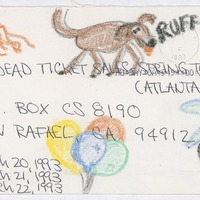 RUFF
DEAD TICKET SALES - SPRING T
(ATLANTA
. BOX CS 8190
N RAFAEL, CA 94912
CH 20, 1993
CH 21, 1993
CH 22, 1993